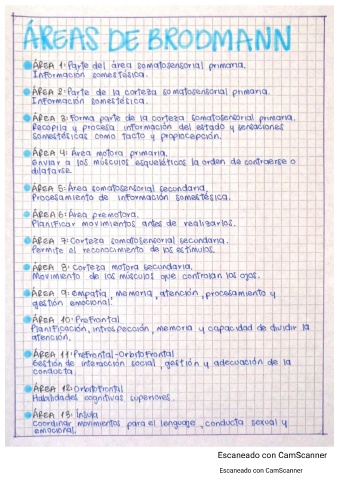 ÁREAS DE BRODMANN
ÁREA 1: Parte del área somatosensorial primaria.
Información somestésica.
ÁREA 2: Parte de la corteza somatosensorial primaria.
Información somestésica.
ÁREA 3: Forma parte de la corteza somatosensorial primaria.
Recopila y procesa información del estado y sensaciones
somestésicas como tacto y propiocepción.
ÁREA 4: Área motora primaria.
enviar a los músculos esqueléticos la orden de contraerse o
dilatarse.
ÁREA 5: Área somatosensorial secundaria,
Procesamiento de información somestésica.
ÁREA 6: Área premotora.
Planificar movimientos antes de realizarlos.
ÁREA 7: Corteza somatosensorial secundaria.
Permite el reconocimiento de los estímulos.
ÁREA 8: Corteza motora secundaria.
Movimiento de los músculos que controlan los ojos.
ÁREA 9: empatía, memoria, atención, procesamiento y
gestión emocional.
ÁREA 10: Prefrontal
Planificación, introspección, memoria y capacidad de dividir la
atención.
ÁREA 11: Prefrontal-Orbitofrontal
Gestión de interacción social, gestión y adecuación de la
conducta.
ÁREA 12: Orbitofrontal
Habilidades cognitivas superiores.
ÁREA 13: Ínsula
Coordinar movimientos para el lenguaje, conducta sexual y
emocional.
Escaneado con CamScanner
Escaneado con CamScanner